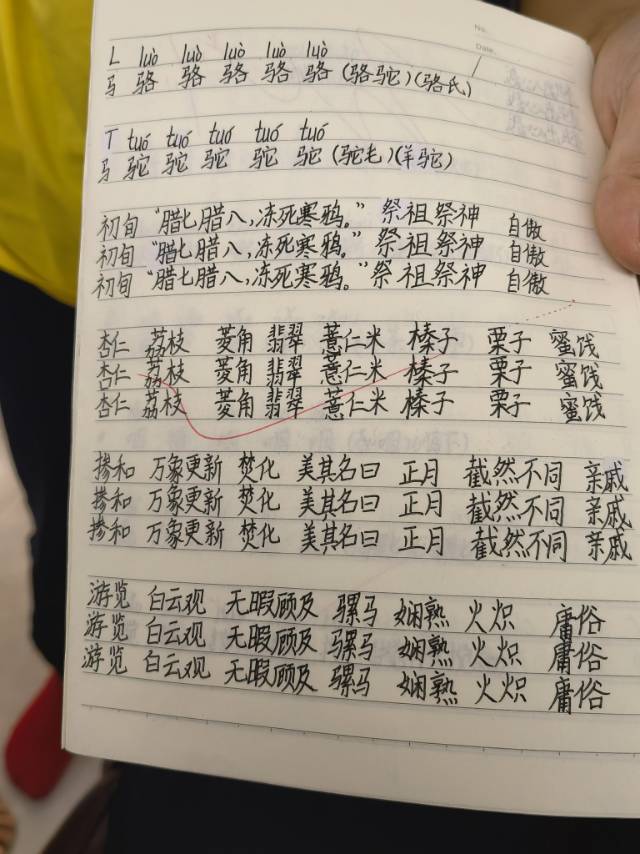 No.
Date.
L luò luò luò luò luò
马 骆 骆 骆 骆 骆 (骆驼) (骆氏)
T tuó tuó tuó tuó tuó
马 驼 驼 驼 驼 驼 (驼毛) (羊驼)
初旬 “腊七腊八,冻死寒鸦。” 祭祖祭神 自傲
初旬 “腊七腊八,冻死寒鸦。” 祭祖祭神 自傲
初旬 “腊七腊八,冻死寒鸦。” 祭祖祭神 自傲
杏仁 荔枝 菱角 翡翠 薏仁米 榛子 栗子 蜜饯
杏仁 荔枝 菱角 翡翠 薏仁米 榛子 栗子 蜜饯
杏仁 荔枝 菱角 翡翠 薏仁米 榛子 栗子 蜜饯
掺和 万象更新 焚化 美其名曰 正月 截然不同 亲戚
掺和 万象更新 焚化 美其名曰 正月 截然不同 亲戚
掺和 万象更新 焚化 美其名曰 正月 截然不同 亲戚
游览 白云观 无暇顾及 骡马 娴熟 火炽 庸俗
游览 白云观 无暇顾及 骡马 娴熟 火炽 庸俗
游览 白云观 无暇顾及 骡马 娴熟 火炽 庸俗